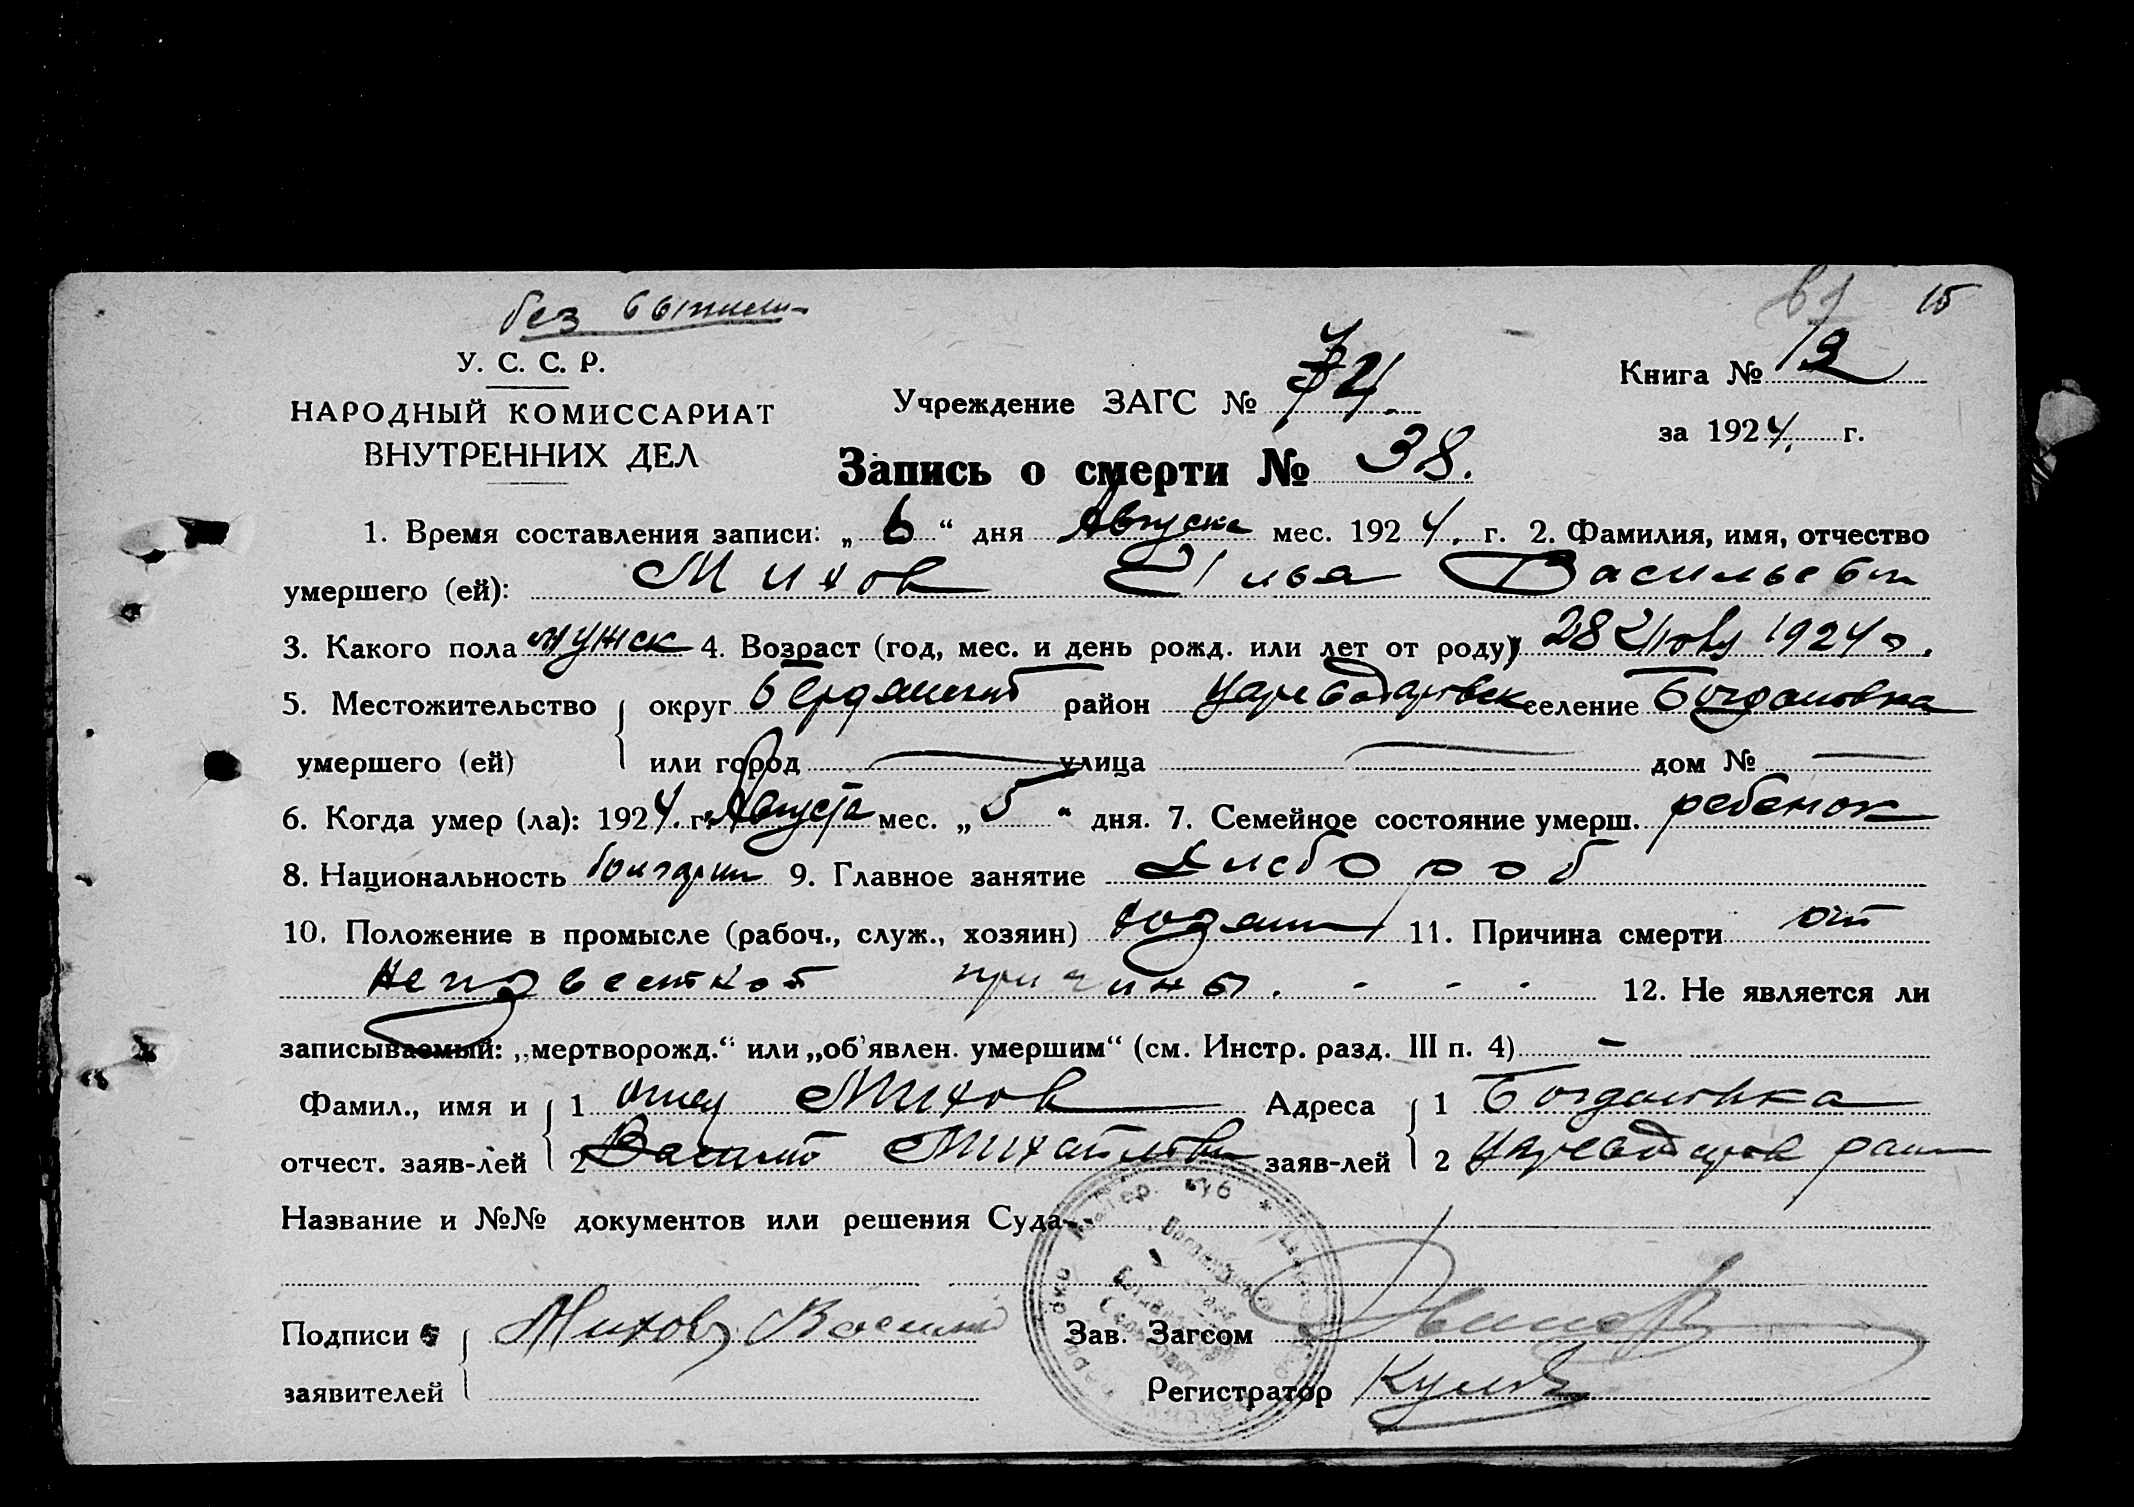 без выписи
15
У. С. С. Р.
НАРОДНЫЙ КОМИССАРИАТ
ВНУТРЕННИХ ДЕЛ
Учреждение ЗАГС №
Книга № 12
за 1924 г.
Запись о смерти № 38.
1. Время составления записи: „ 6 “ дня Августа мес. 1924. г. 2. Фамилия, имя, отчество
умершего (ей): Михов Илья Васильевич
3. Какого пола мужск 4. Возраст (год, мес. и день рожд. или лет от роду) 28 1924 г.
5. Местожительство округ Бердянский район Цареводаровск селение Богдановка
умершего (ей) или город — улица — дом № —
6. Когда умер (ла): 1924. г. Августа мес. „ 5 “ дня. 7. Семейное состояние умерш. ребенок
8. Национальность болгарин 9. Главное занятие Хлебороб
10. Положение в промысле (рабоч., служ., хозяин) хозяин 11. Причина смерти от
неизвесткой причины. - - - 12. Не является ли
записываемый: „мертворожд.“ или „об'явлен. умершим“ (см. Инстр. разд. III п. 4) -
Фамил., имя и 1 отец Михов Адреса 1 Богдановка
отчест. заяв-лей 2 Василий Михайлович заяв-лей 2 Цареводаров район
Название и №№ документов или решения Суда - -
Подписи заявителей Михов Василий
Зав. Загсом
Регистратор